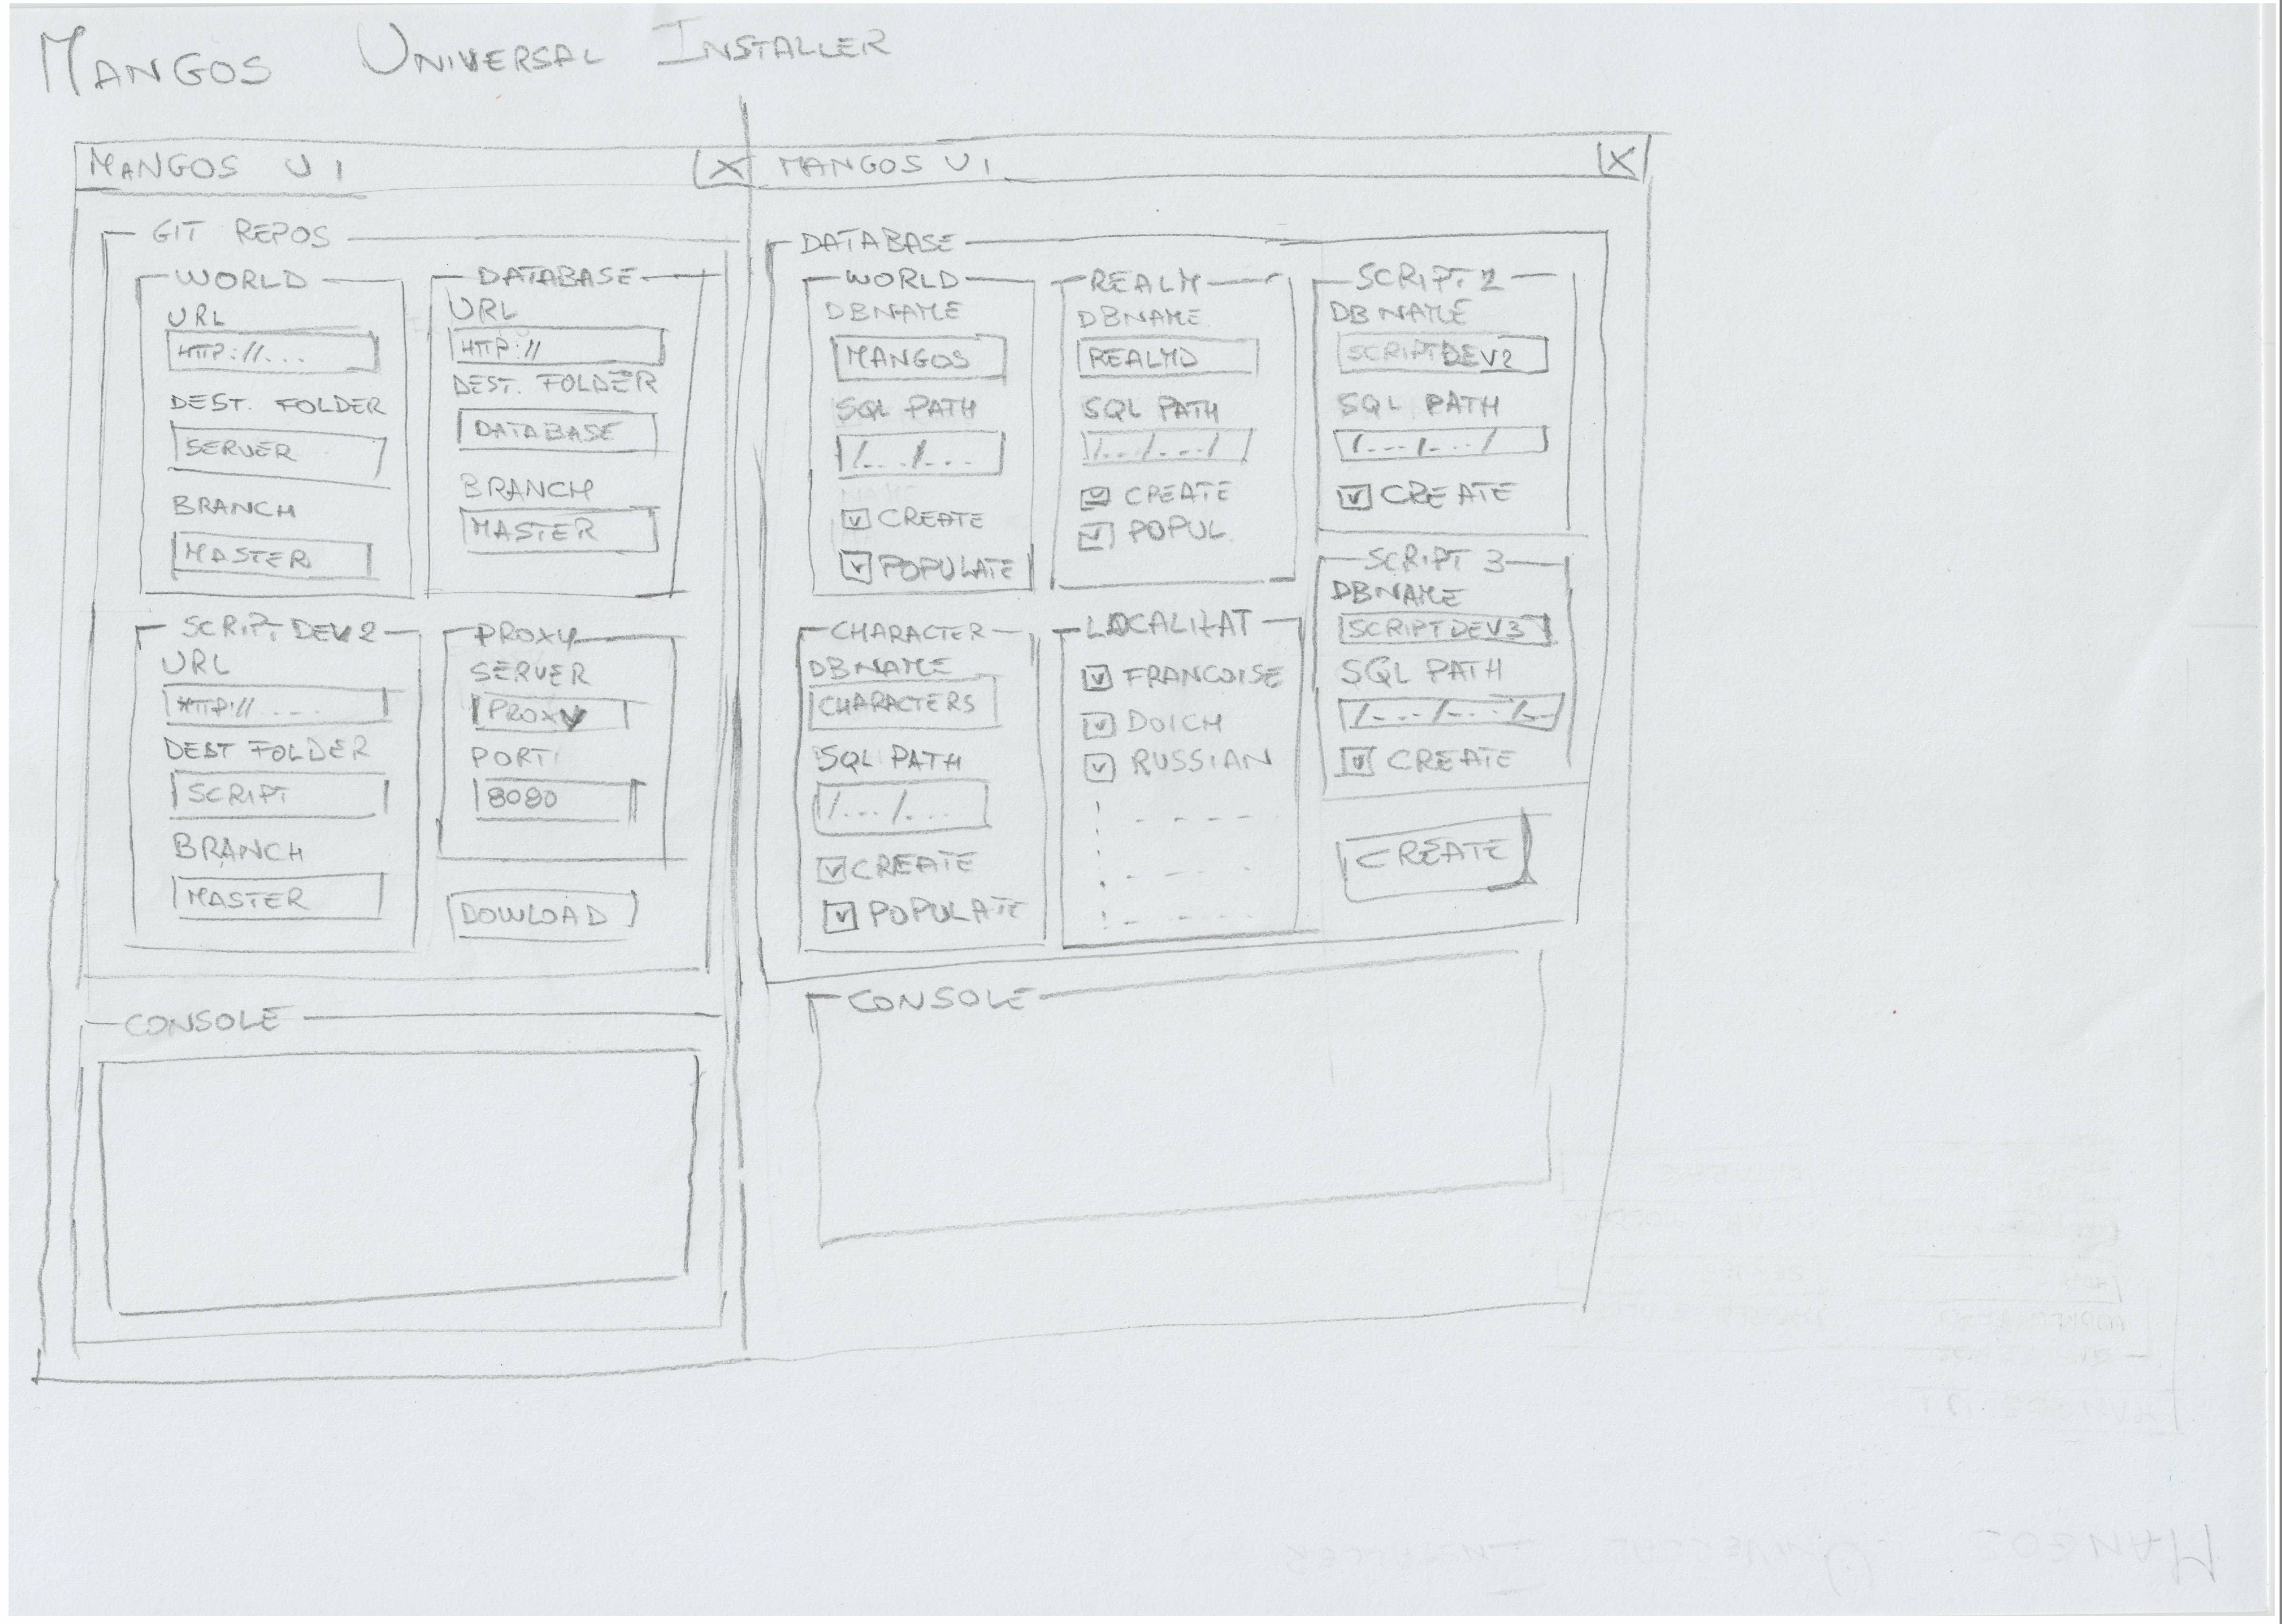 MANGOS UNIVERSAL INSTALLER
MANGOS UI
X
GIT REPOS
WORLD
URL
HTTP://...
DEST. FOLDER
SERVER
BRANCH
MASTER
DATABASE
URL
HTTP://
DEST. FOLDER
DATABASE
BRANCH
MASTER
SCRIPT DEV2
URL
HTTP://...
DEST FOLDER
SCRIPT
BRANCH
MASTER
PROXY
SERVER
PROXY
PORT
8080
DOWLOAD
CONSOLE
MANGOS UI
X
DATABASE
WORLD
DBNAME
MANGOS
SQL PATH
/.../...
CREATE
POPULATE
REALM
DBNAME
REALMD
SQL PATH
/.../.../
CREATE
POPUL.
SCRIPT 2
DBNAME
SCRIPTDEV2
SQL PATH
/.../.../
CREATE
CHARACTER
DBNAME
CHARACTERS
SQL PATH
/.../...
CREATE
POPULATE
LOCALIZAT
FRANCOISE
DOICH
RUSSIAN
SCRIPT 3
DBNAME
SCRIPTDEV3
SQL PATH
/.../.../...
CREATE
CREATE
CONSOLE